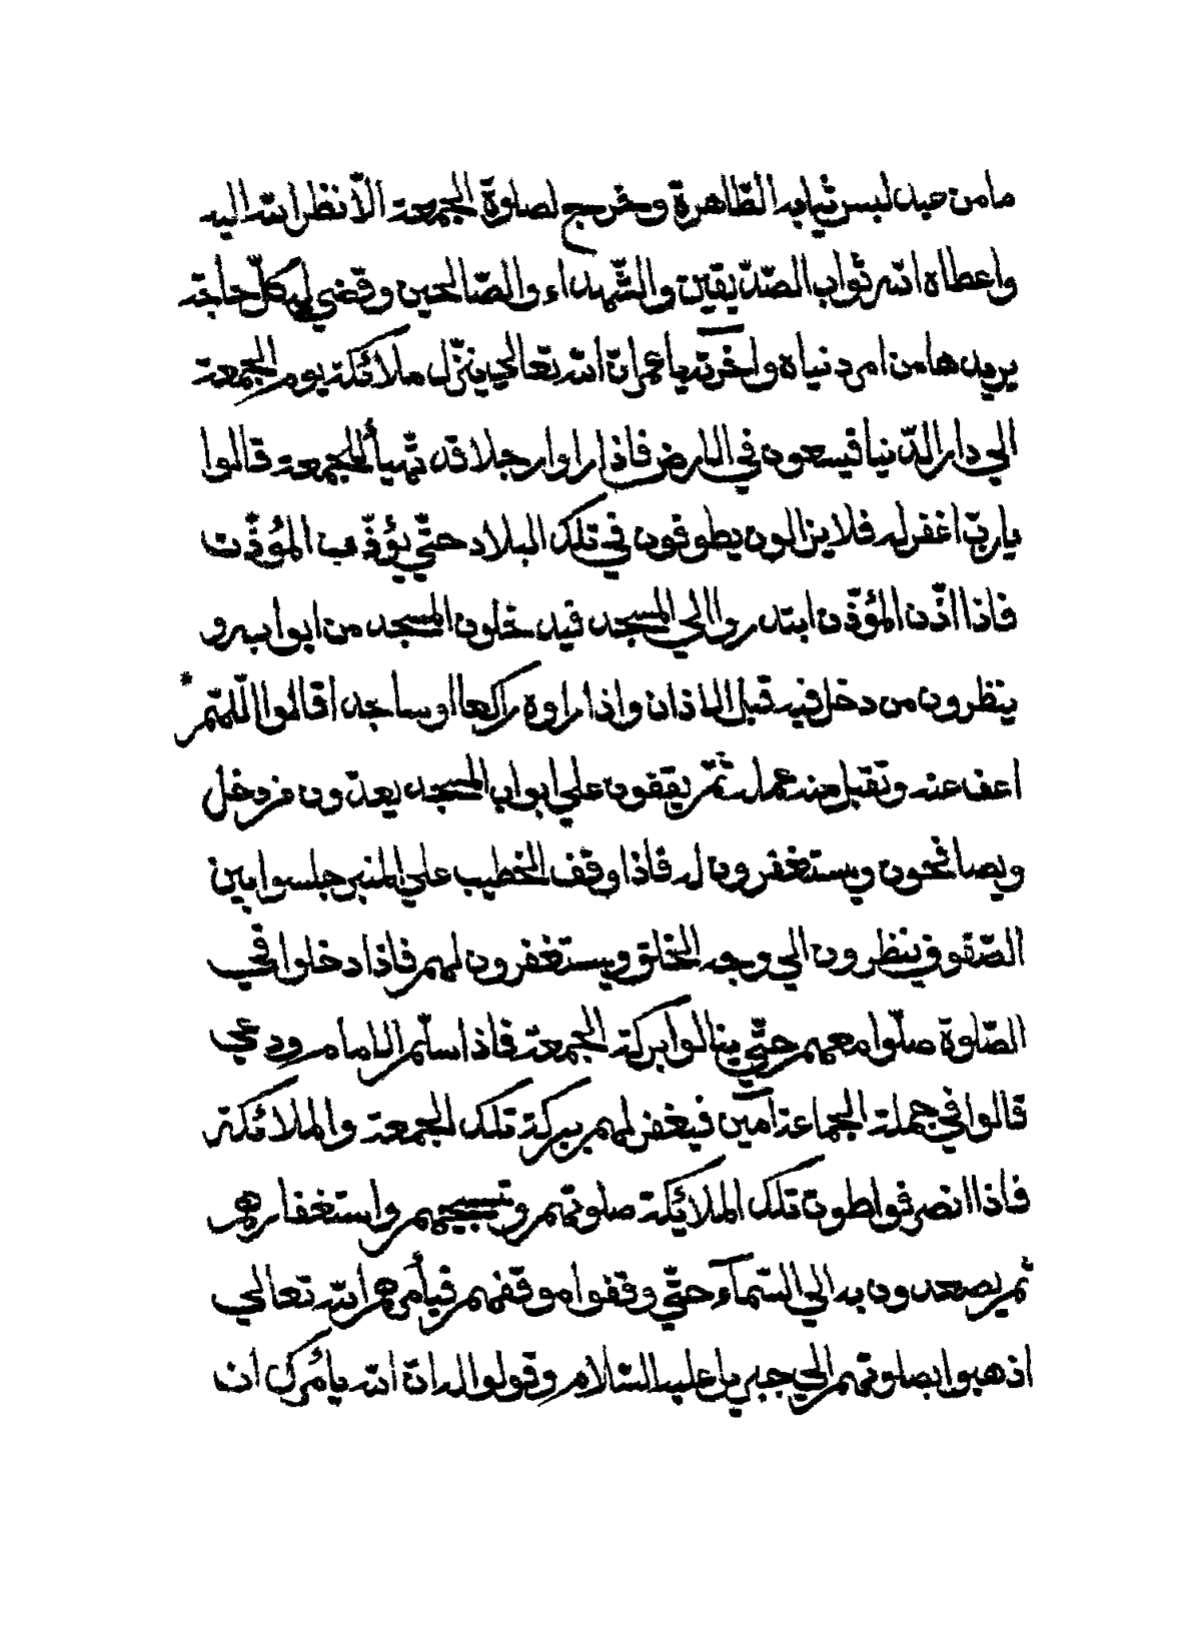 ما من عبد لبس ثيابه الطّاهرة وخرج لصلوة الجمعة الّا نظر الله اليه
واعطاه الله ثواب الصّدّيقين والشّهداء والصّالحين وقضي له كلّ حاجة
يريدها من امر دنياه وآخرته يا عمران الله تعالي ينزّل ملائكة يوم الجمعة
الي دار الدّنيا فيسعون في الارض فاذا راوا رجلا قد تهيأ للجمعة قالوا
يا ربّ اغفر له فلا يزالون يطوفون في تلك البلاد حتّي يؤذّن المؤذّن
فاذا اذّن المؤذّن ابتدروا الي المسجد فيدخلون المسجد من ابوابه و
ينظرون من دخل فيه قبل الاذان واذا راوه راكعا او ساجدا قالوا اللّهمّ
اعف عنه وتقبل منه عمله ثمّ يقفون علي ابواب المسجد يعدّون من دخل
ويصافحون ويستغفرون له فاذا وقف الخطيب علي المنبر جلسوا بين
الصّفوف ينظرون الي وجه الخلق ويستغفرون لهم فاذا دخلوا في
الصّلوة صلّوا معهم حتّي ينالوا بركة الجمعة فاذا سلّم الامام ودعي
قالوا في جملة الجماعة آمين فيغفر لهم ببركة تلك الجمعة والملائكة
فاذا انصرفوا طوت تلك الملائكة صلوتهم وتسبيحهم واستغفارهم
ثم يصعدون به الي السّمآء حتّي وقفوا موقفهم فيأمرهم الله تعالي
اذهبوا بصلوتهم الي جبريل عليه السّلام وقولوا له انّ الله يأمرك ان